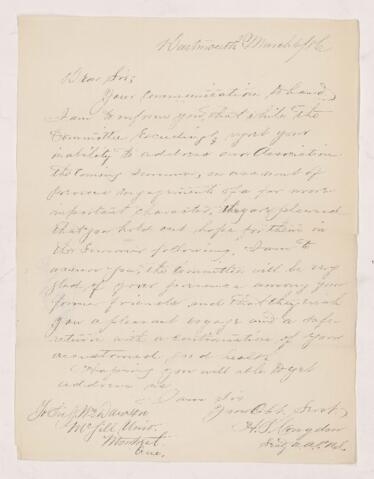 Dartmouth, March 6/86
Dear Sir;
Your communication to hand.
I am to inform you, that while the
Committee exceedingly regret your
inability to address our Association
the coming summer, on account of
previous engagements of a far more
important character, they are pleased
that you hold out hope for them in
the Summer following. I am to
assure you, the Committee will be very
glad of your presence among your
former friends and that they wish
you a pleasant voyage and a safe
return with a continuation of your
accustomed good health
Hoping you will able to yet
address us
I am Sir
Your Obt. Servt,
H. S. Congdon
To Sir J. Wm Dawson
McGill Univ.
Montreal
Que.